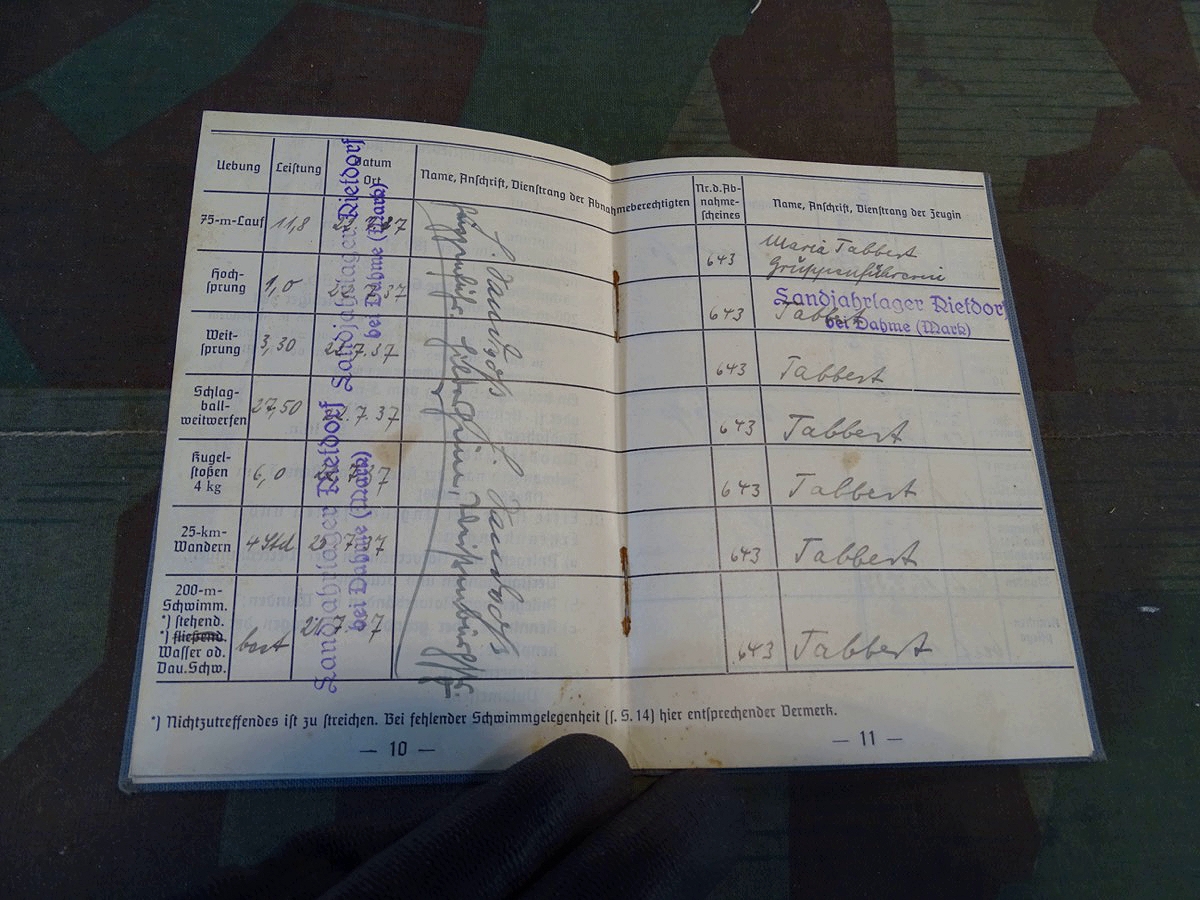 Uebung Leistung Datum Ort Name, Anschrift, Dienstrang der Abnahmeberechtigten Nr. d. Ab-nahme-scheines Name, Anschrift, Dienstrang der Zeugin
75-m-Lauf 11,8 7 37 643 Maria Tabbert
Gruppenführerin
Hoch-
sprung 1,0 37 643 Tabbert
Landjahrlager Rietdorf
bei Dahme (Mark)
Weit-
sprung 3,30 7.37 643 Tabbert
Schlag-
ball-
weitwerfen 27,50 7.37 643 Tabbert
Kugel-
stoßen
4 kg 6,0 7 643 Tabbert
25-km-
Wandern 4 Std 7 643 Tabbert
200-m-
Schwimm.
*) stehend.
*) fließend.
Wasser od.
Dau. Schw. 7 643 Tabbert
Landjahrlager Rietdorf
bei Dahme (Mark)
Landjahrlager Rietdorf
bei Dahme (Mark)
*) Nichtzutreffendes ist zu streichen. Bei fehlender Schwimmgelegenheit (s. S. 14) hier entsprechender Vermerk.
— 10 —
— 11 —